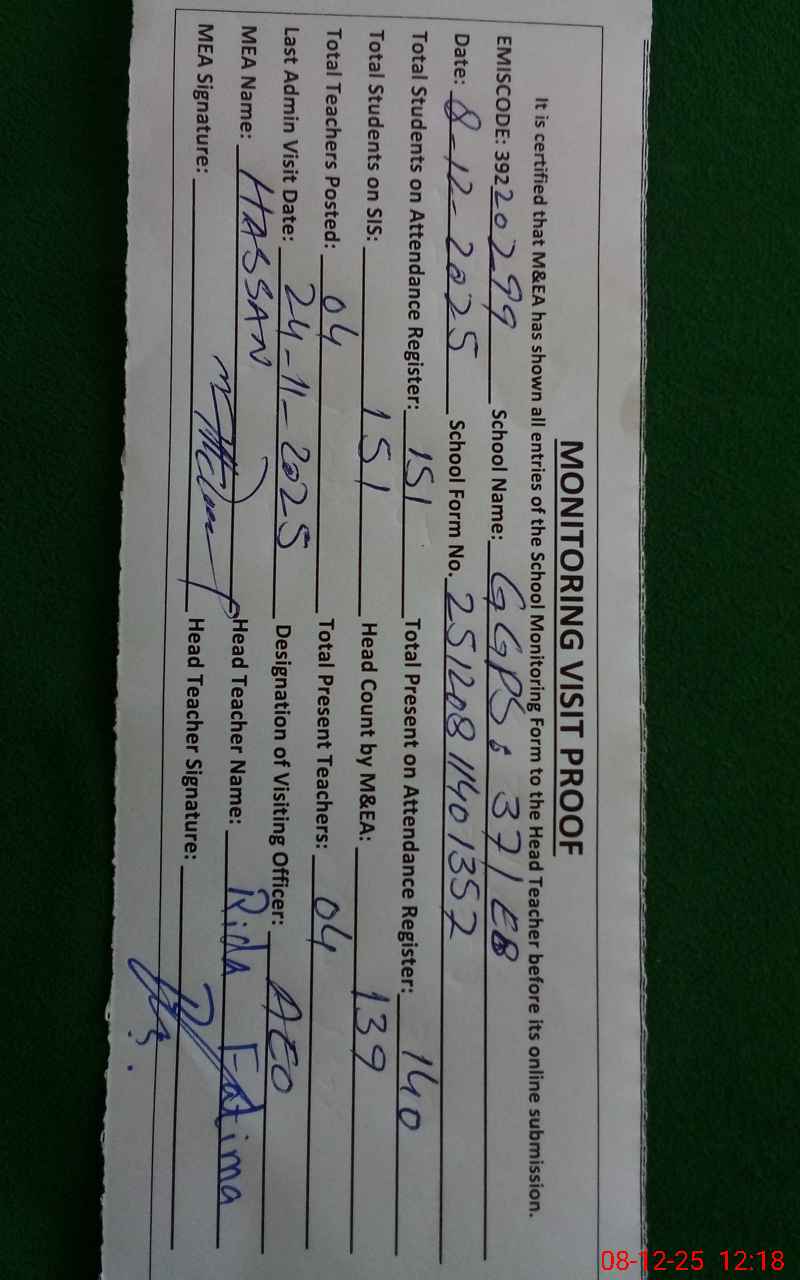 MONITORING VISIT PROOF
It is certified that M&EA has shown all entries of the School Monitoring Form to the Head Teacher before its online submission.
EMISCODE: 39220299 School Name: GGPS: 37/EB
Date: 8-12-2025 School Form No. 25120811401357
Total Students on Attendance Register: 151 Total Present on Attendance Register: 140
Total Students on SIS: 151 Head Count by M&EA: 139
Total Teachers Posted: 04 Total Present Teachers: 04
Last Admin Visit Date: 24-11-2025 Designation of Visiting Officer: AEO
MEA Name: HASSAN Head Teacher Name: Rida Fatima
MEA Signature: Head Teacher Signature:
08-12-25 12:18